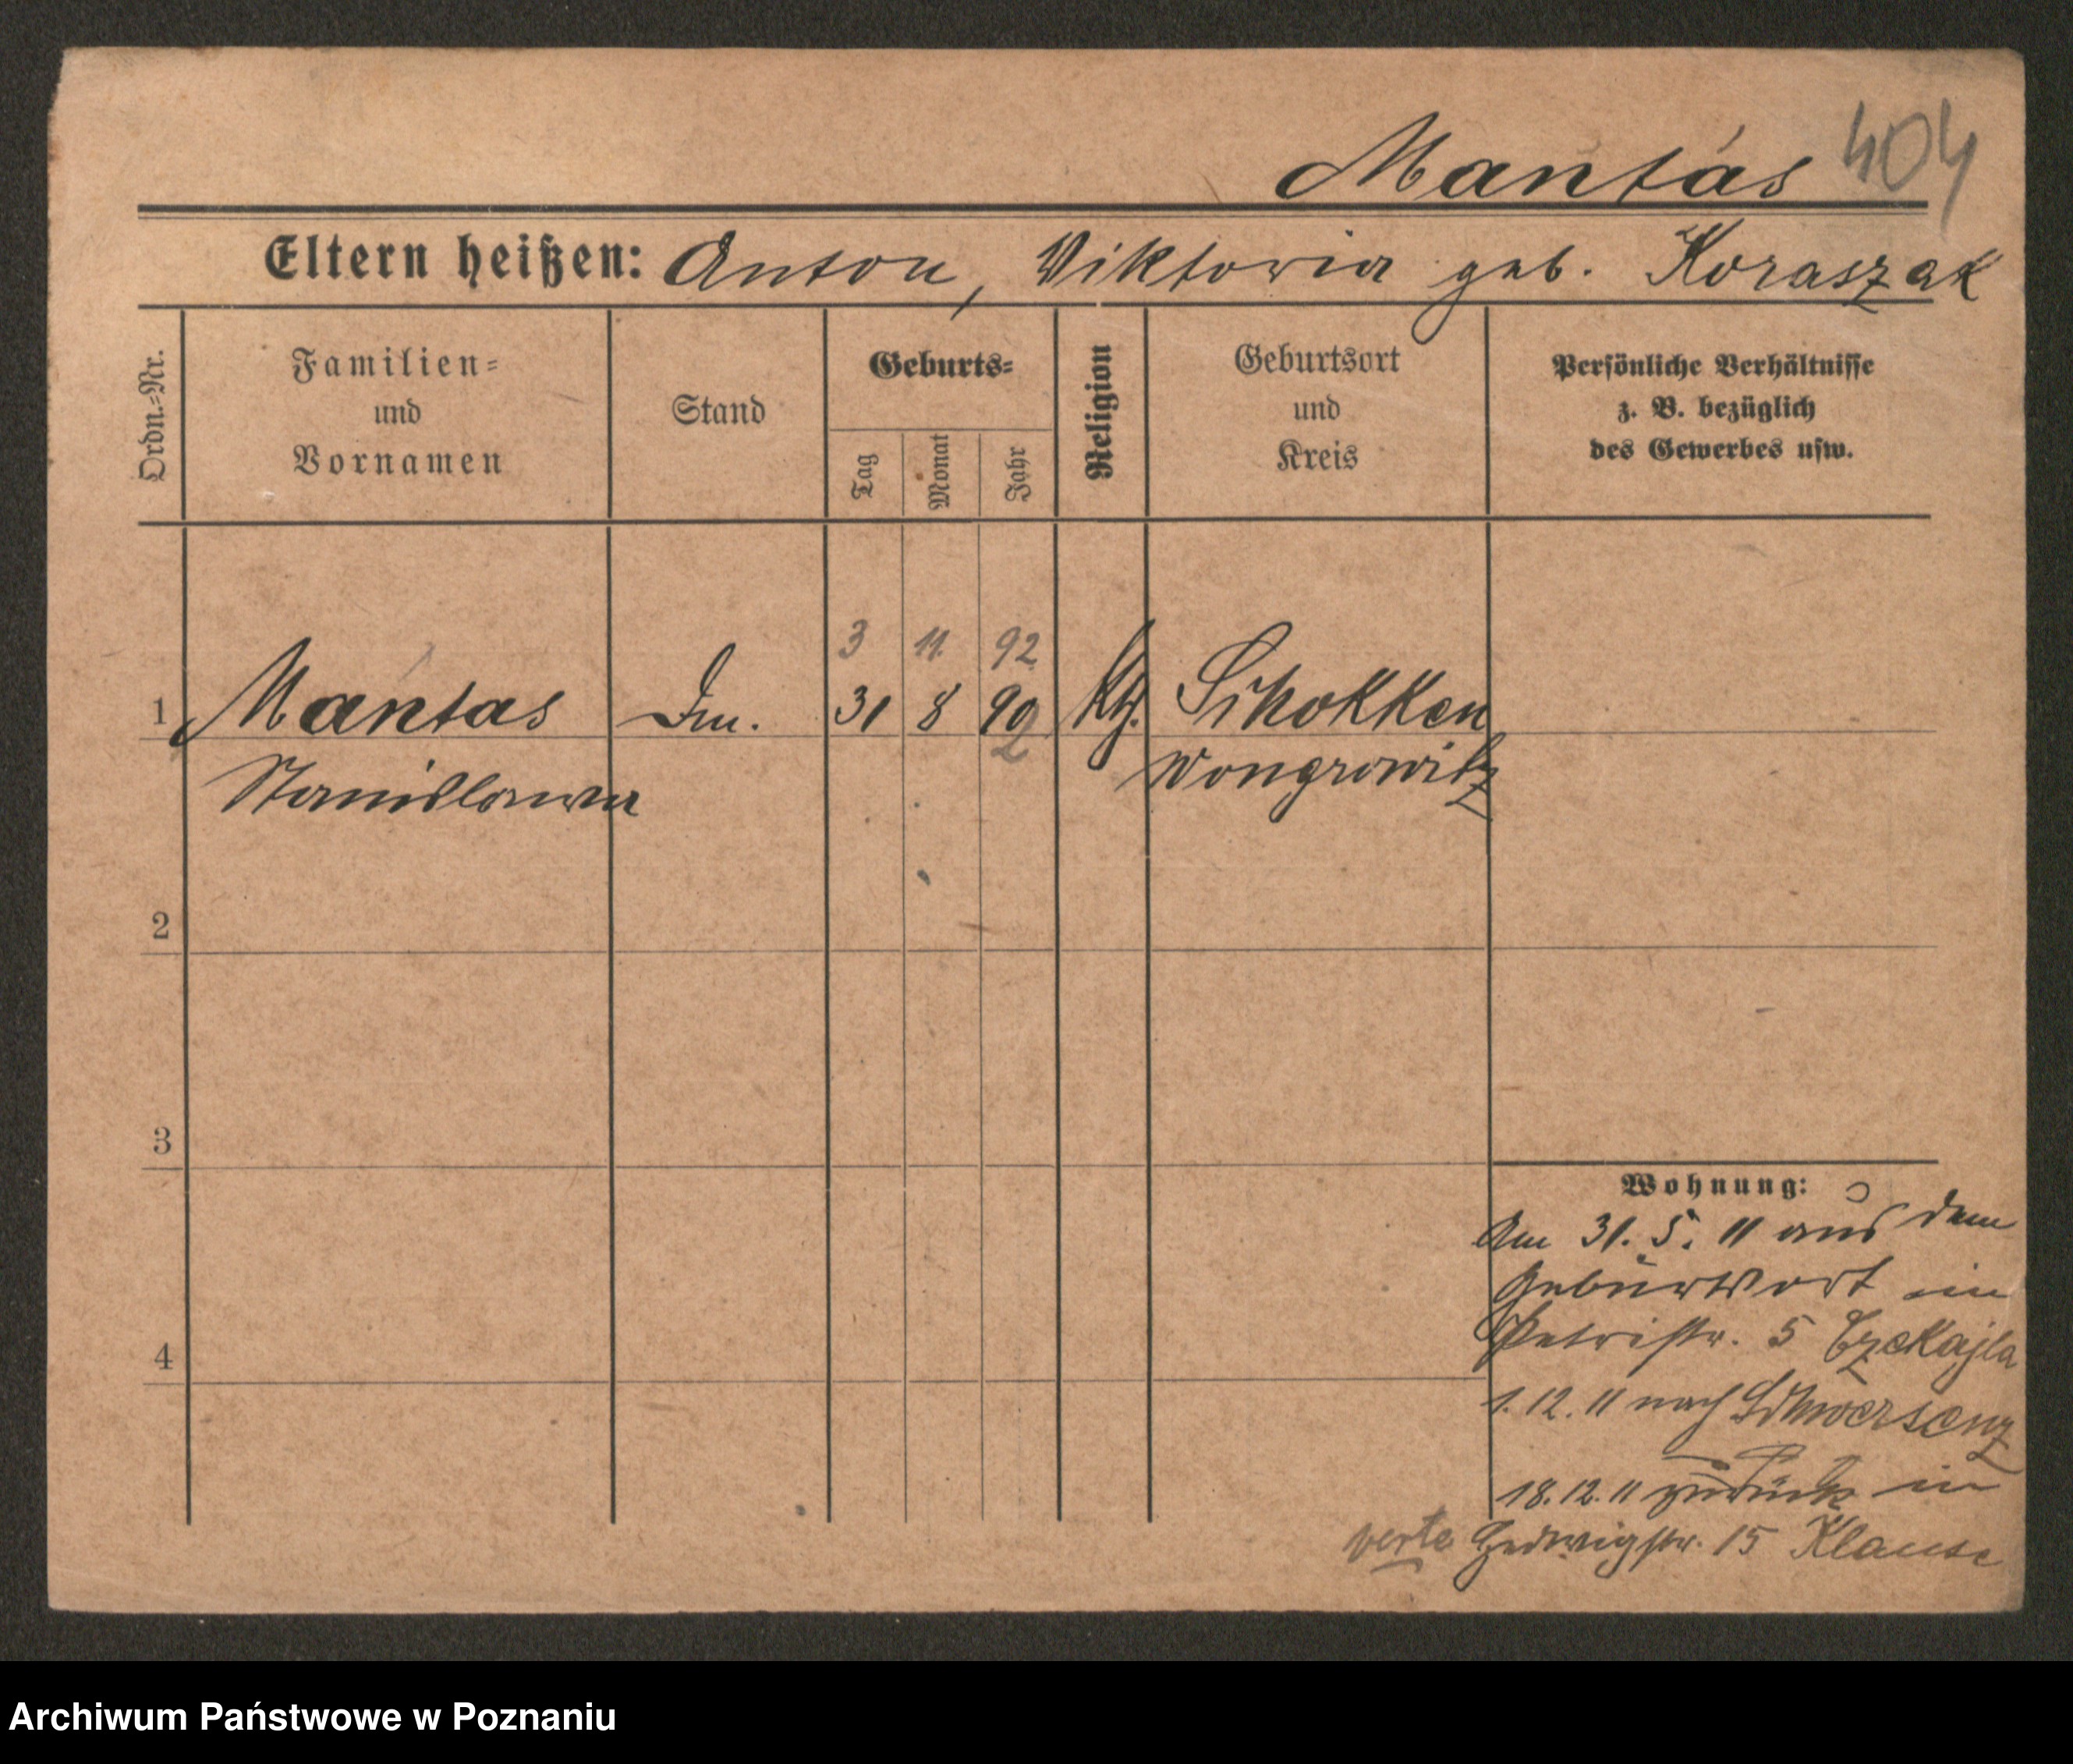 Mantás 404
Eltern heißen: Anton, Viktoria geb. Koraszak
Ordn.=Nr.
Familien=
und
Vornamen
Stand
Geburts=
Tag
Monat
Jahr
Religion
Geburtsort
und
Kreis
Persönliche Verhältnisse
z. B. bezüglich
des Gewerbes usw.
3 11. 92
1 Mantas 31 8 90 Kth. Schokken
2
Stanislawa Wongrowitz
2
3
4
Wohnung:
Am 31. 5. 11 aus dem
Geburtsort in
Petristr. 5 Czekajla
1. 12. 11 nach Schwersenz
18. 12. 11 zurück in
verte Hedwigstr. 15 Klause
Archiwum Państwowe w Poznaniu